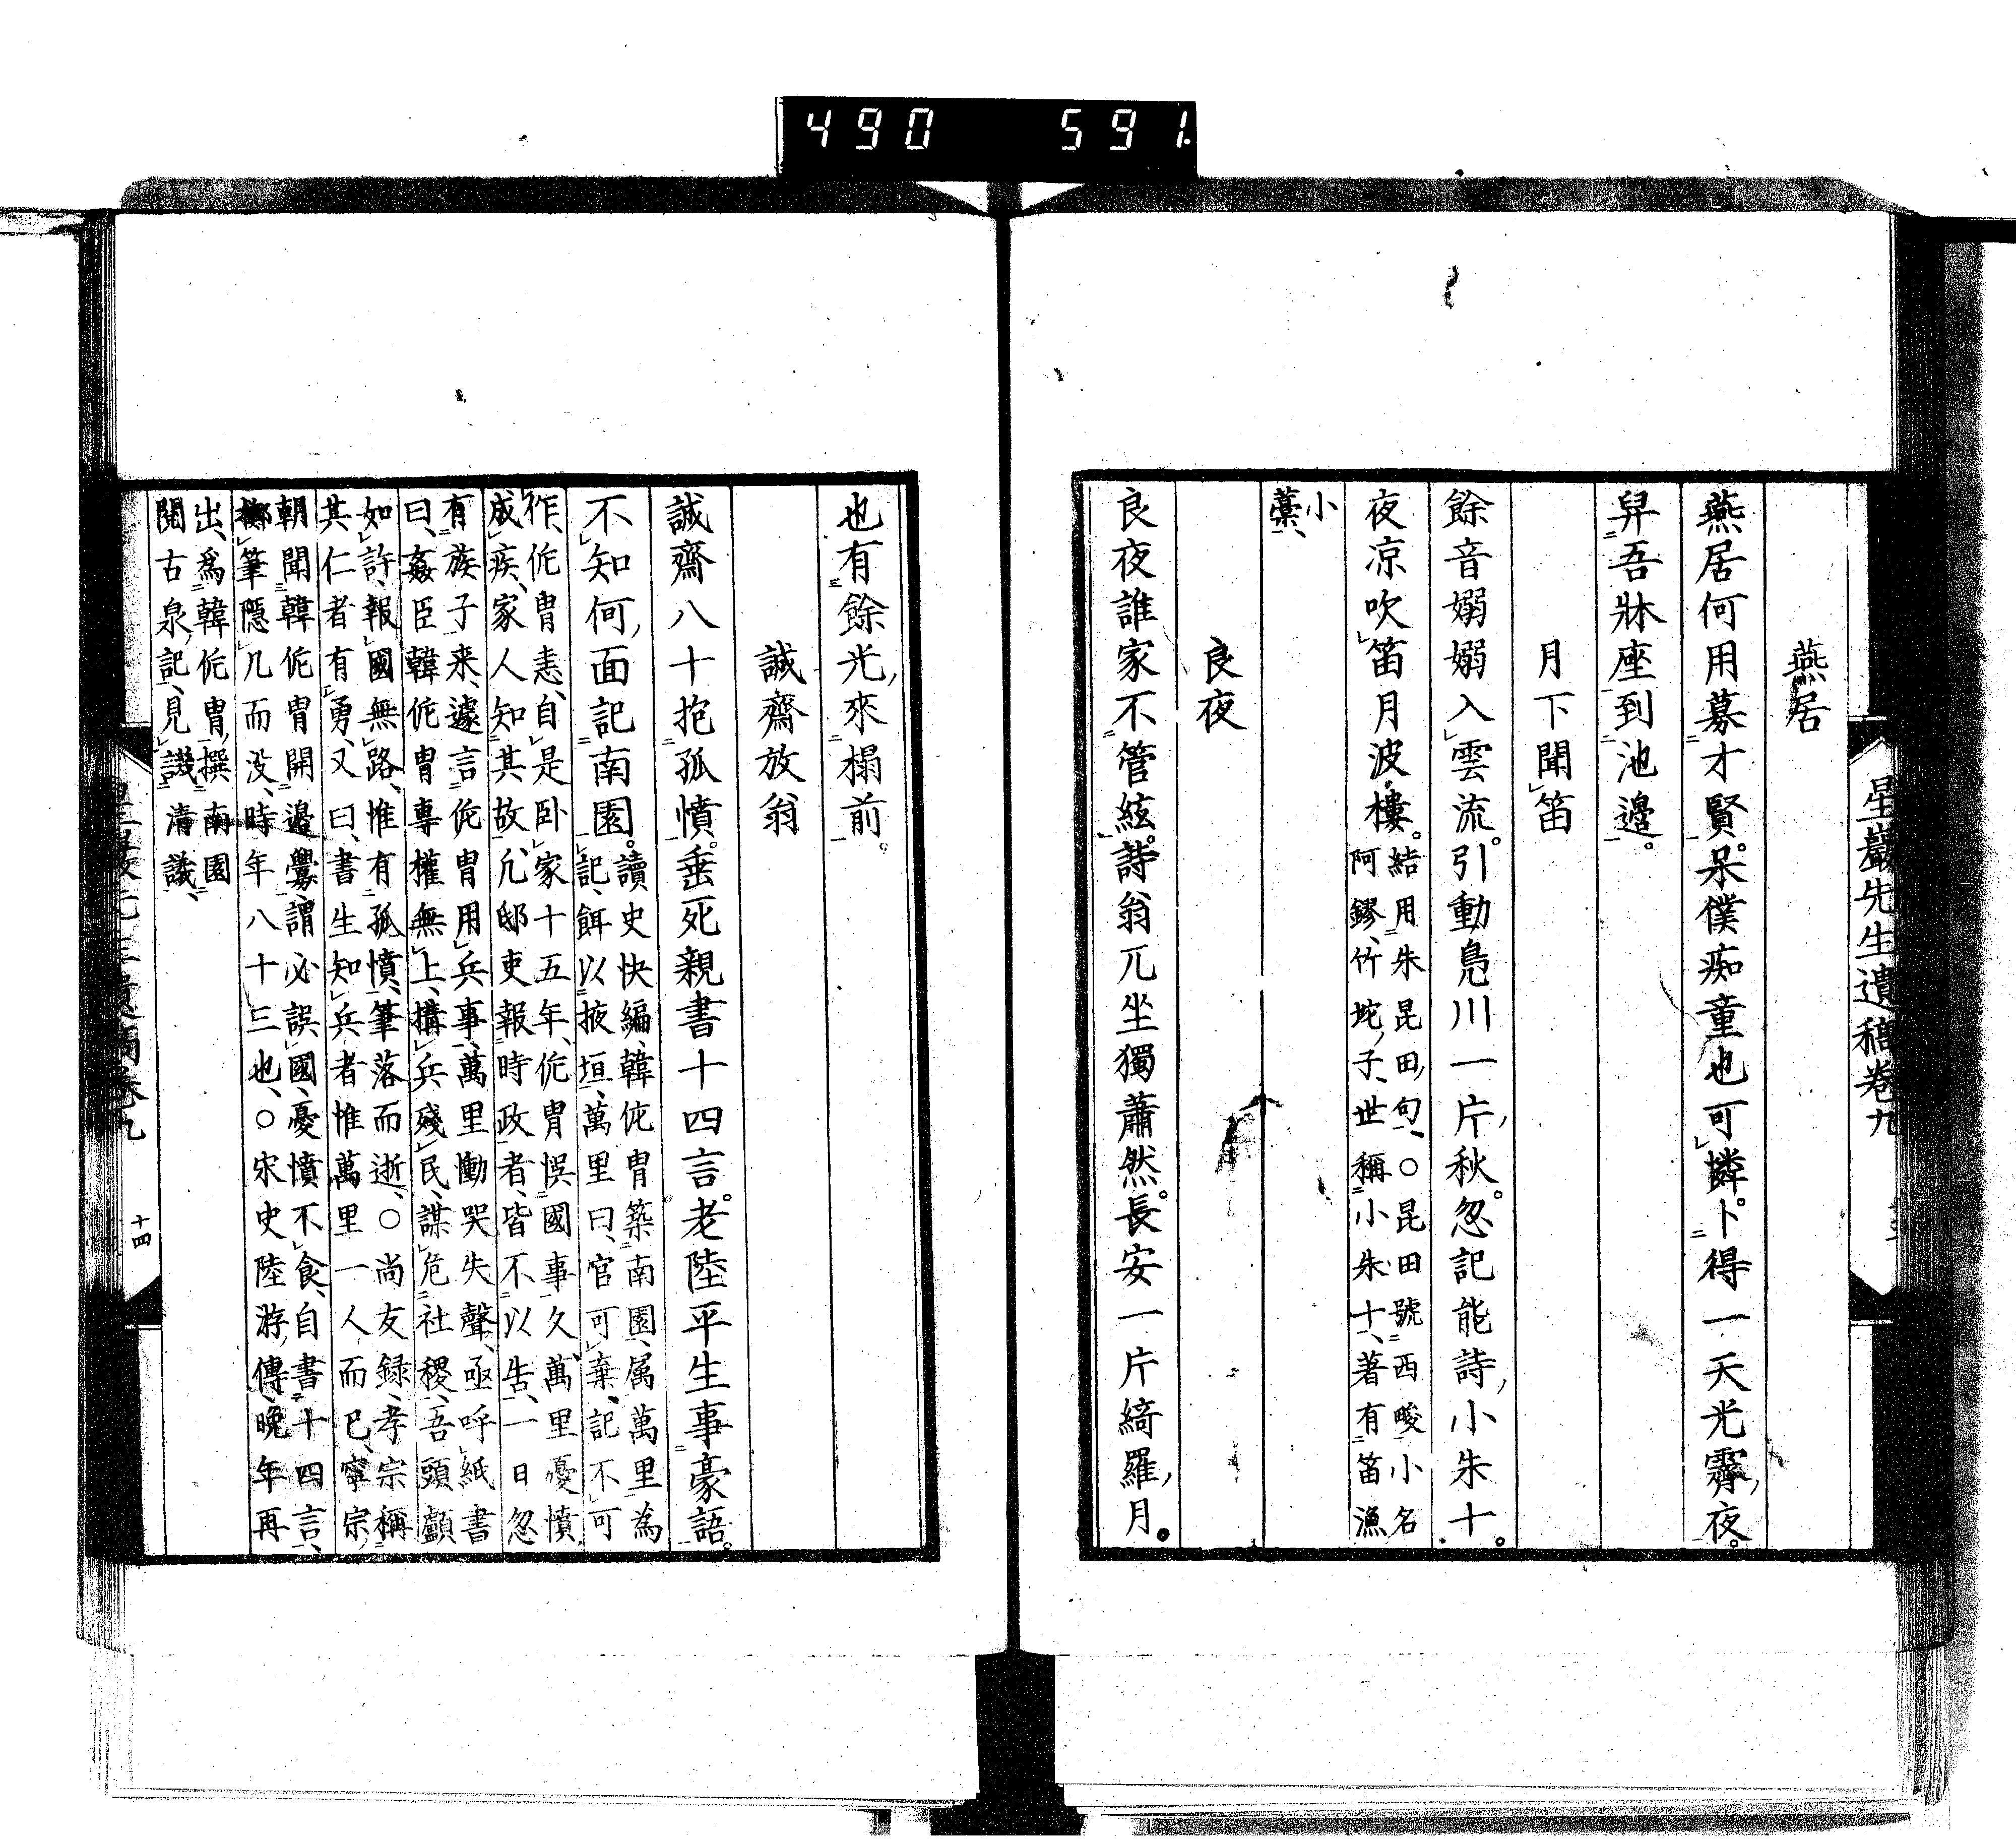 490 591
星巖先生遺稿卷九
燕居
燕居何用募才賢。呆僕痴童也可憐。卜得一天光霽夜。
舁吾牀座到池邊。
月下聞笛
餘音嫋嫋入雲流。引動鳧川一片秋。忽記能詩小朱十。
夜凉吹笛月波樓。
結用朱昆田句、○昆田號西畯小名
阿鏐、竹垞子、世稱小朱十、著有笛漁
小
藁、
良夜
良夜誰家不管絃。詩翁兀坐獨蕭然。長安一片綺羅月。
也有餘光來榻前。
誠齋放翁
誠齋八十抱孤憤。垂死親書十四言。老陸平生事豪語。
不知何面記南園。
讀史快編、韓侂胄築南園、属萬里為
記、餌以掖垣、萬里曰、官可棄、記不可
作、侂胄恚、自是卧家十五年、侂胄悞國事久、萬里憂憤
成疾、家人知其故、凡邸吏報時政者、皆不以告、一日忽
有族子来、遽言侂胄用兵事、萬里慟哭失聲、亟呼紙書
曰、姦臣韓侂胄專權無上、搆兵殘民、謀危社稷、吾頭顱
如許、報國無路、惟有孤憤、筆落而逝、○尚友録、孝宗稱
其仁者有勇、又曰、書生知兵者惟萬里一人而已、寧宗
朝聞韓侂胄開邉釁、謂必誤國、憂憤不食、自書十四言、
擲筆隠几而没、時年八十三也、○宋史陸游傳、晩年再
出、爲韓侂胄撰南園
閲古泉記、見譏清議、
十四